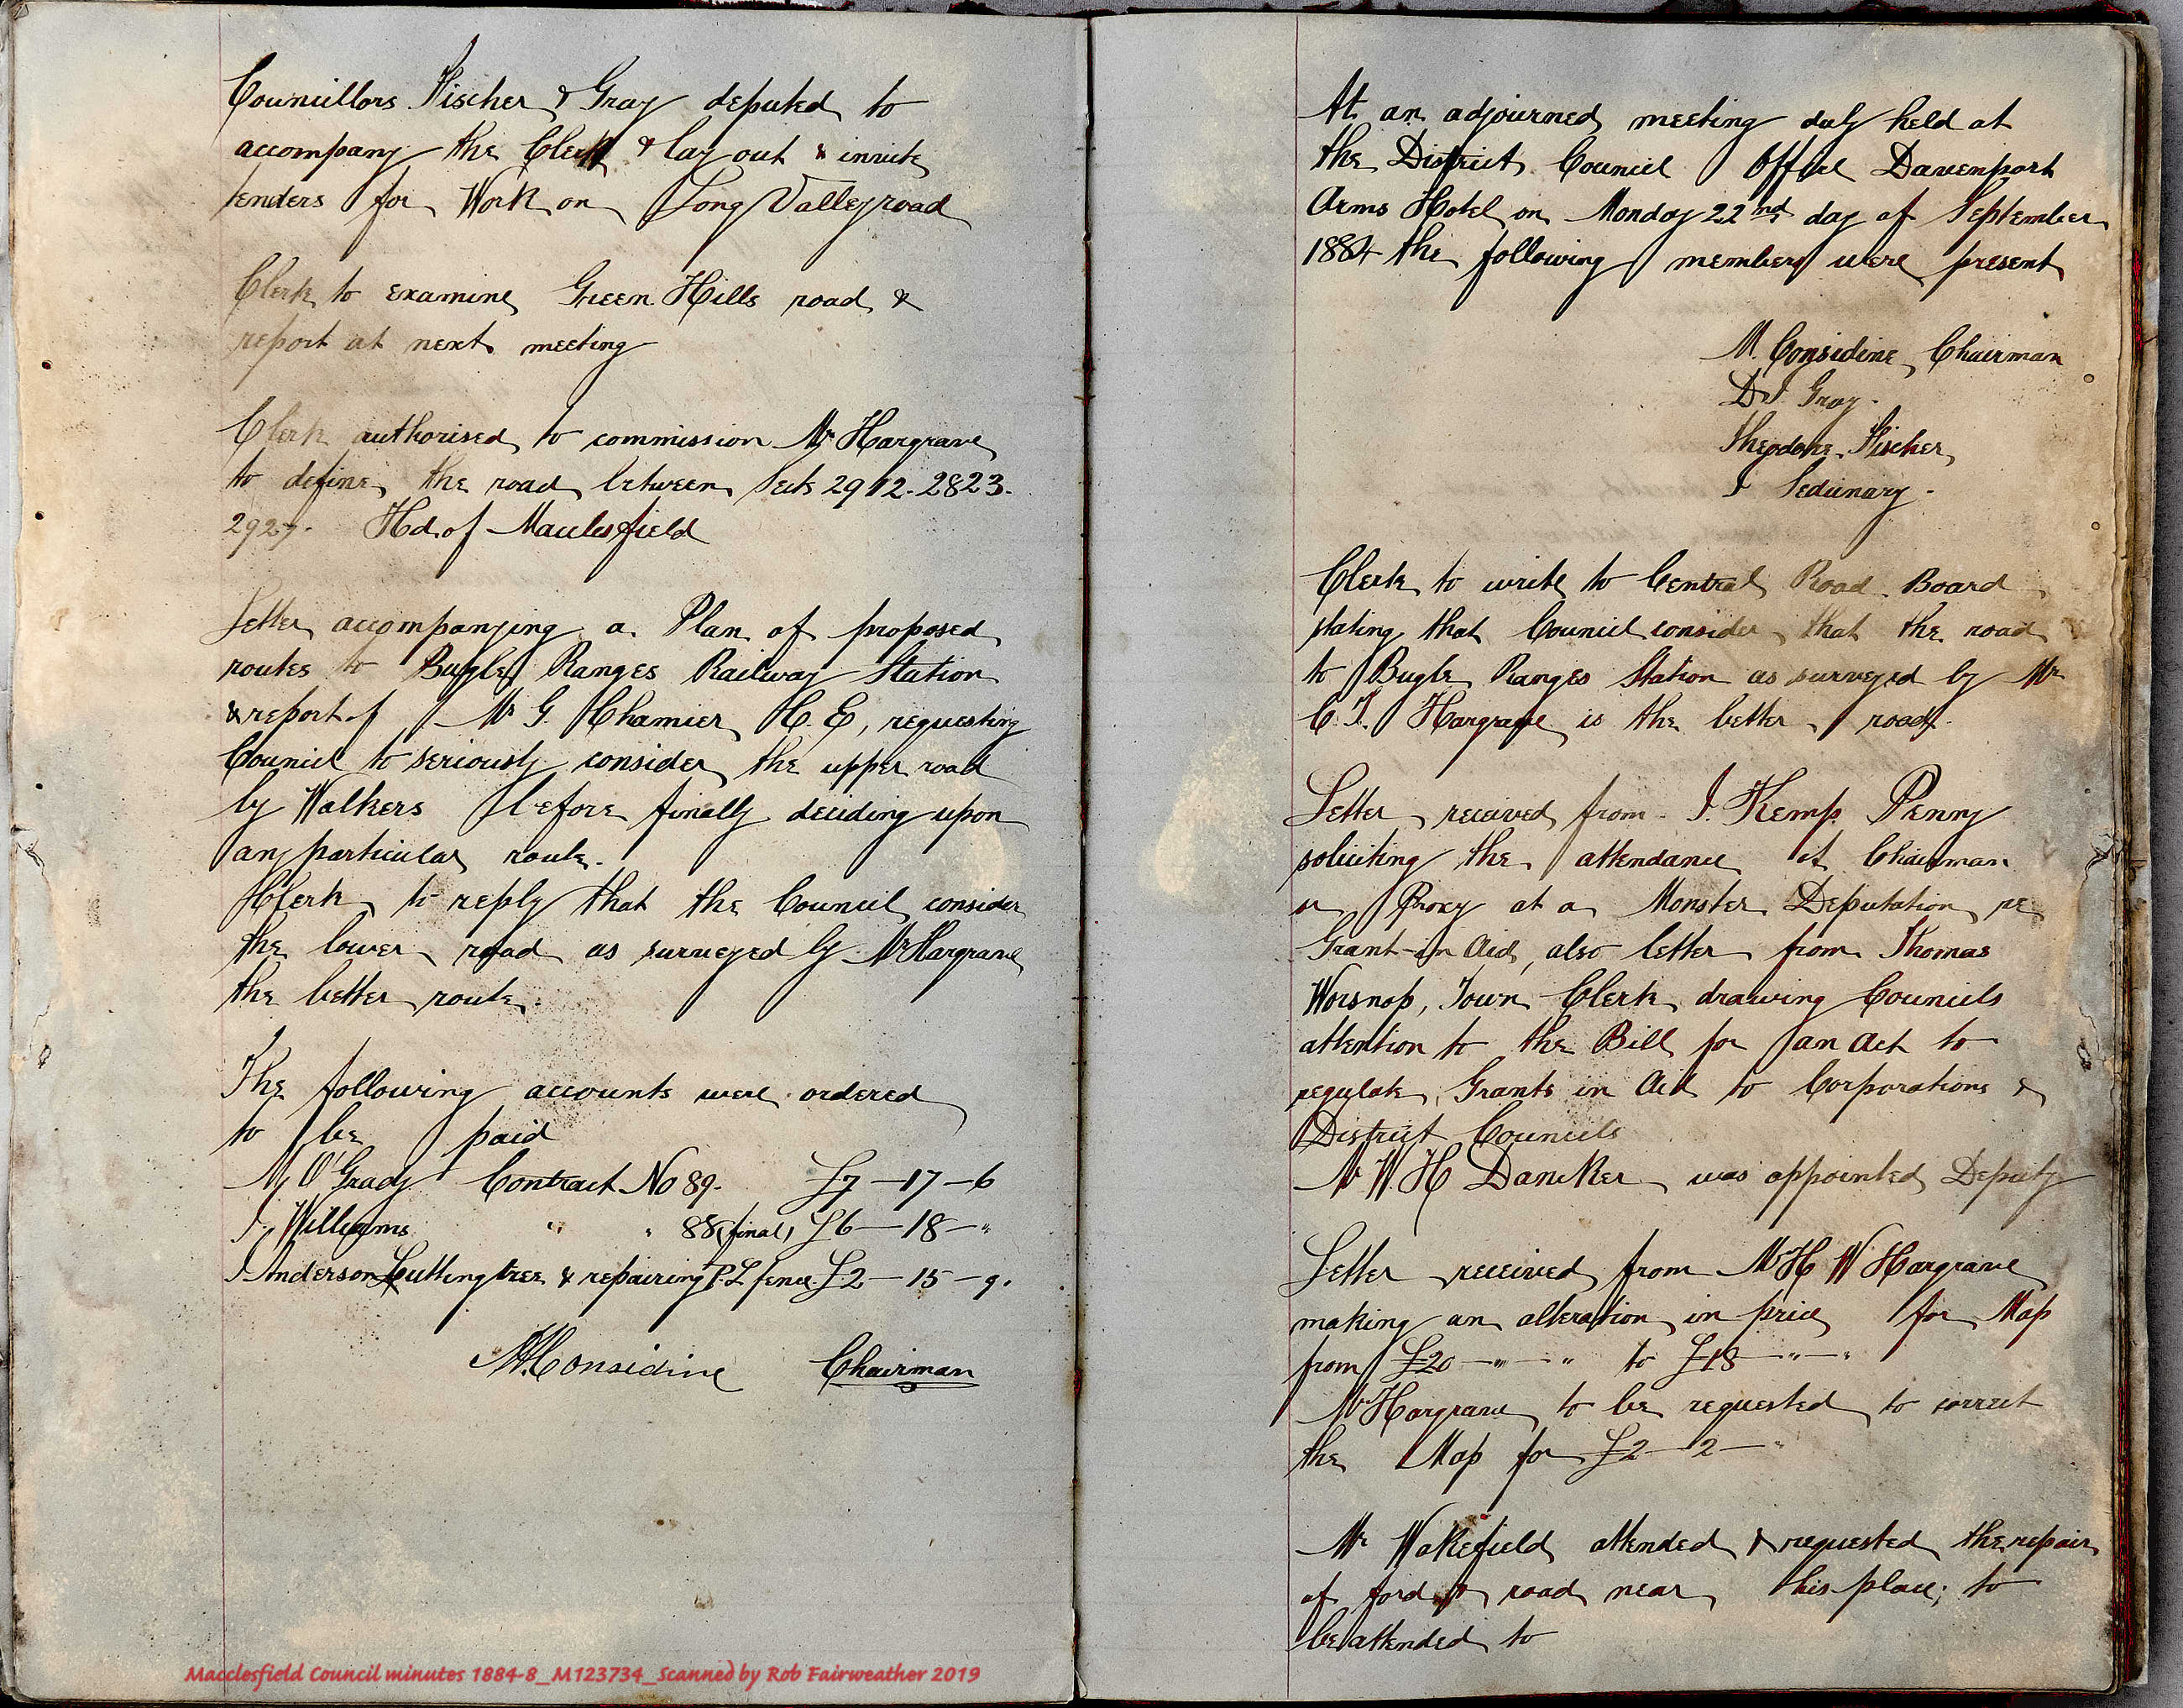 Councillors Fischer & Gray deputed to
accompany the Clerk & lay out & invite
tenders for Work on Long Valley road
Clerk to examine Green Hills road &
report at next meeting
Clerk authorised to commission Mr Hargrave
to define the road between Sects 2912. 2823.
2927. Hd of Macclesfield
Letter accompanying a Plan of proposed
routes to Bugle Ranges Railway Station
& report of Mr G. Chamier C. E, requesting
Council to seriously consider the upper road
by Walkers before finally deciding upon
any particular route.
Clerk to reply that the Council consider
the lower road as surveyed by Mr Hargrave
the better route.
The following accounts were ordered
to be paid
M O'Grady Contract No 89. £7 — 17 — 6
J. Williams " " 88 (final) £6 — 18 — "
J Anderson Cutting tree & repairing P.L fence. £2 — 15 — 9.
M. Considine Chairman
At an adjourned meeting duly held at
the District Council Office Davenport
Arms Hotel on Monday 22nd day of September
1884 the following members were present
M. Considine Chairman
D J Gray.
Theodore Fischer
J Sedunary.
Clerk to write to Central Road Board
stating that Council consider that the road
to Bugle Ranges Station as surveyed by Mr
C. T. Hargrave is the better road.
Letter received from J. Kemp Penny
soliciting the attendance of Chairman
or Proxy at a Monster Deputation re
Grant-in Aid, also letter from Thomas
Worsnop, Town Clerk drawing Councils
attention to the Bill for an Act to
regulate Grants in Aid to Corporations &
District Councils
Mr W. H Dancker was appointed Deputy
Letter received from Mr H W Hargrave
making an alteration in price for Map
from £20 — " — " to £18 — " — "
Mr Hargrave to be requested to correct
the Map for £2 — 2 — "
Mr Wakefield attended & requested the repair
of ford & road near his place; to
be attended to
Macclesfield Council minutes 1884-8_M123734_Scanned by Rob Fairweather 2019